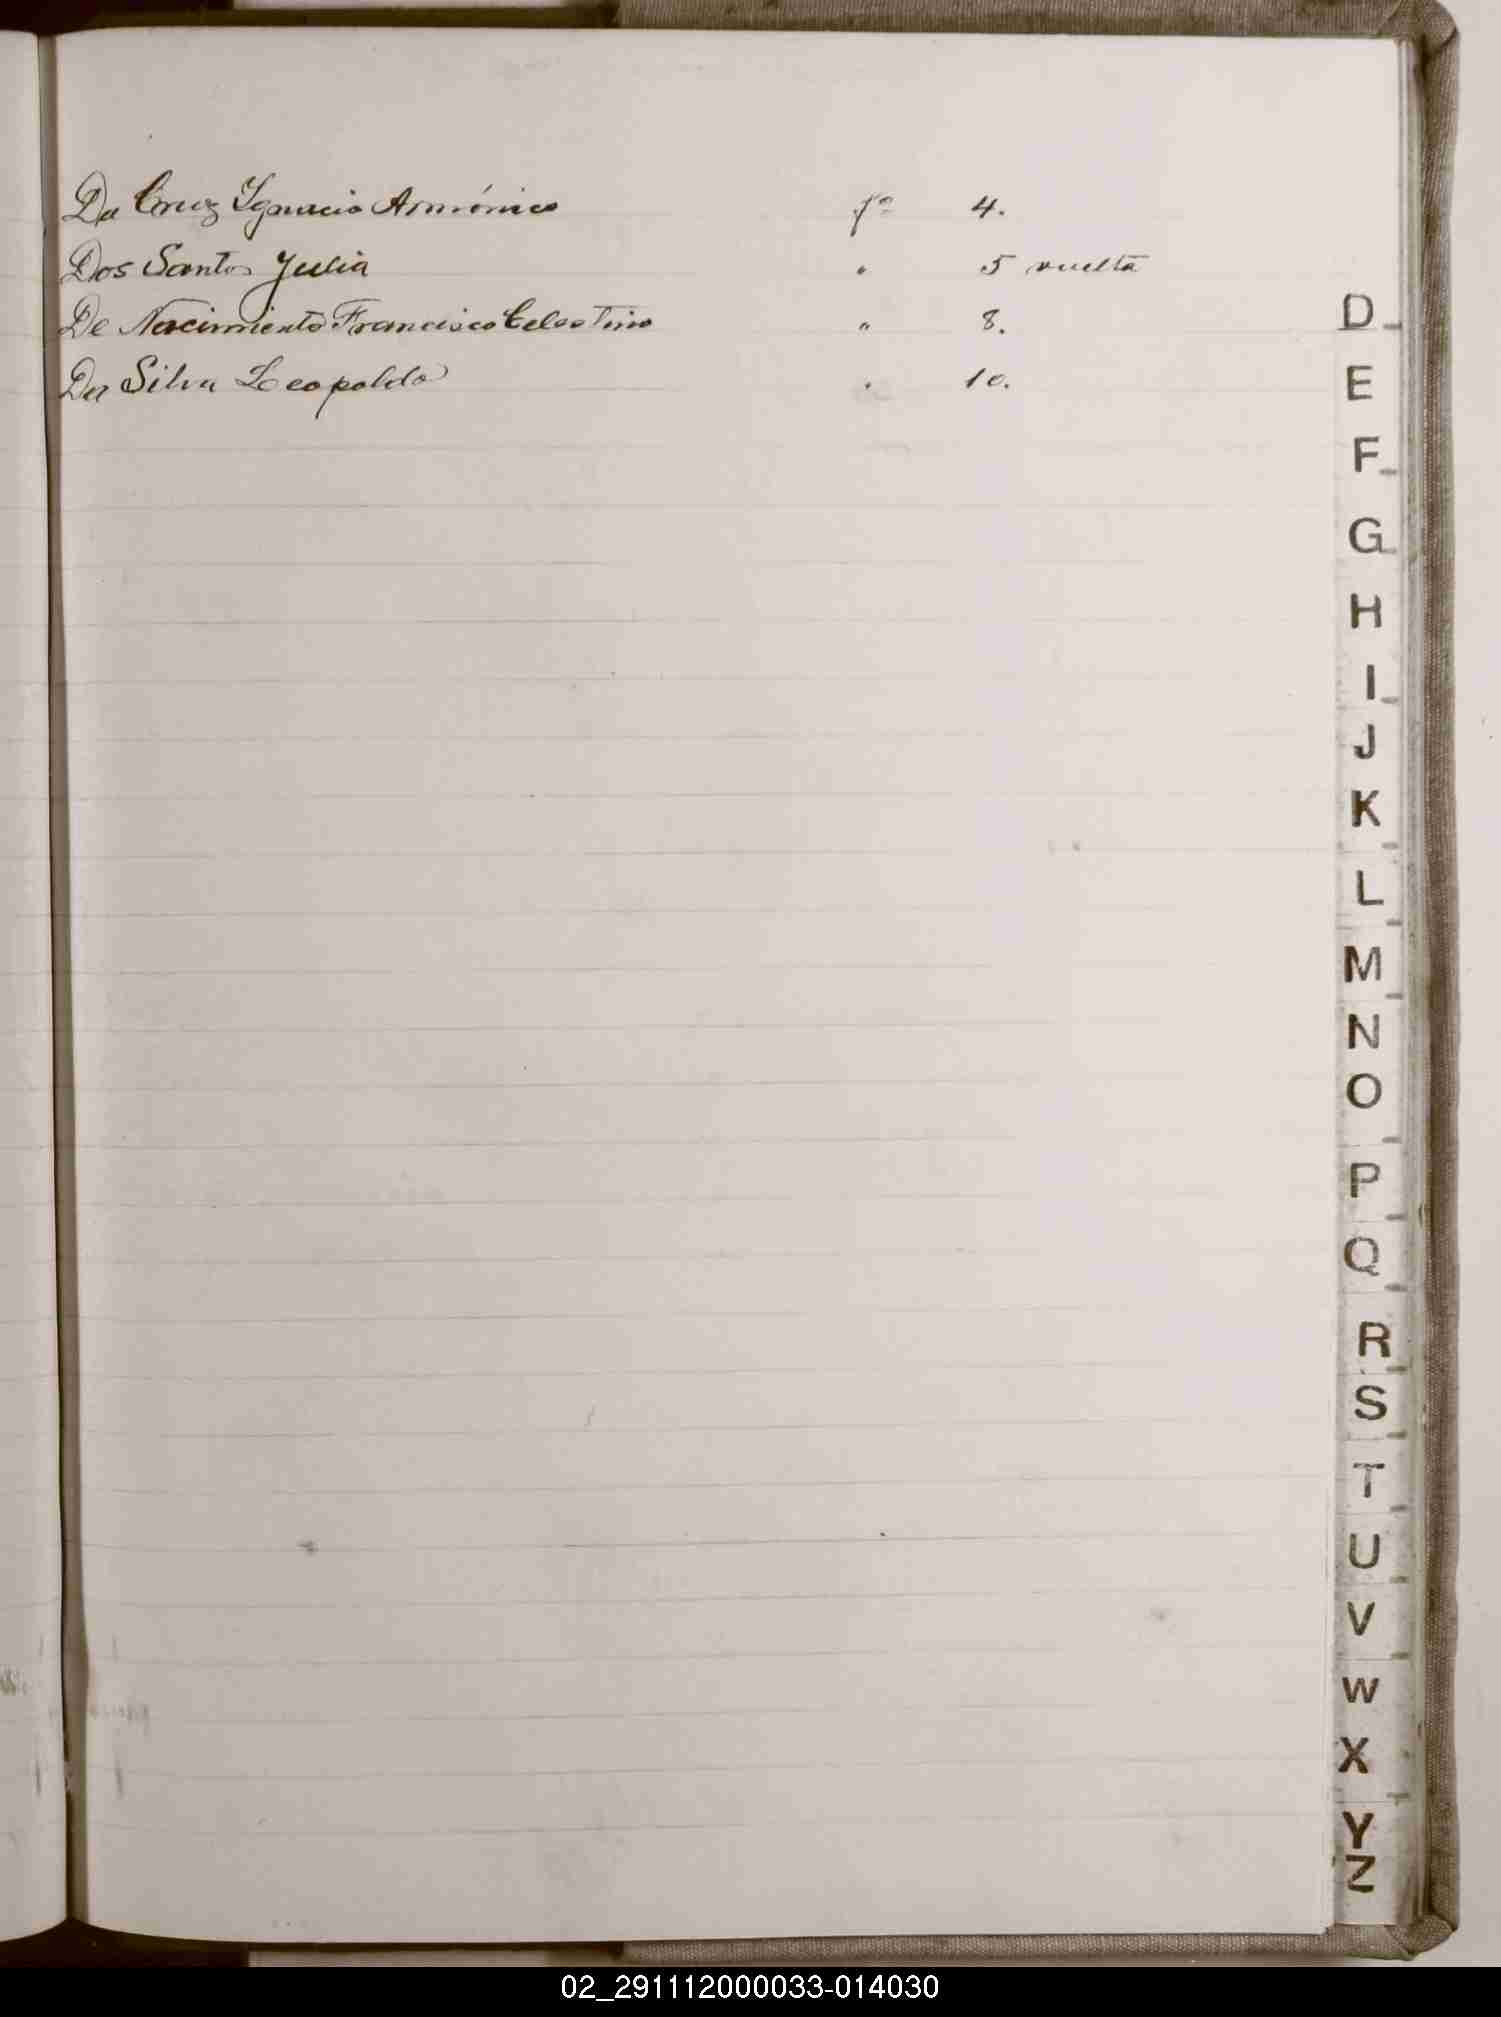 Da Cruz Ygnacio Armónico fº 4.
Dos Santos Julia " 5 vuelta
De Nacimiento Francisco Celestino " 8.
Da Silva Leopoldo " 10.
D
E
F
G
H
I
J
K
L
M
N
O
P
Q
R
S
T
U
V
W
X
Y
Z
02_291112000033-014030